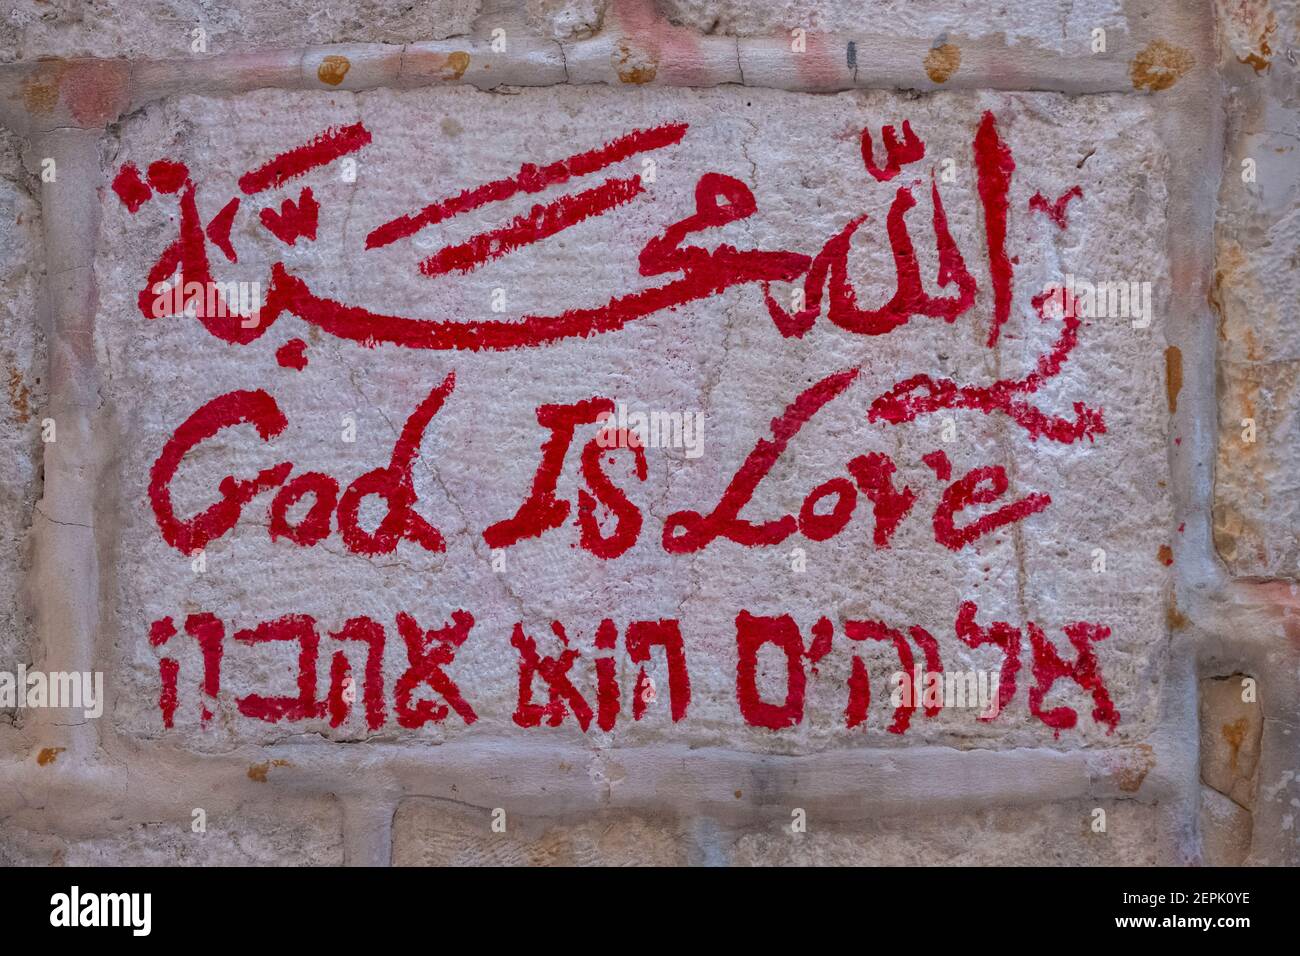 الله محبة
God Is Love
אלוהים הוא אהבה
alamy
Image ID: 2EPK0YE
www.alamy.com